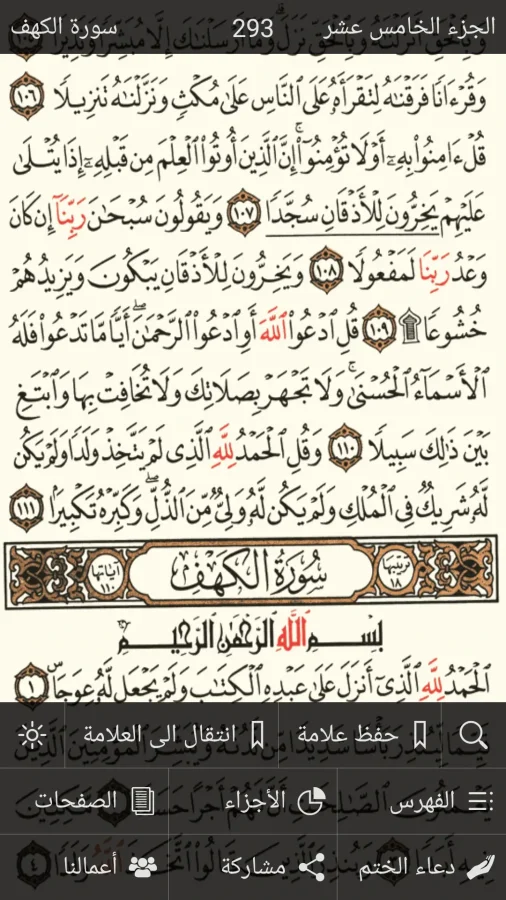 الجزء الخامس عشر 293 سورة الكهف
وَقُرْءَانًا فَرَقْنَٰهُ لِتَقْرَأَهُۥ عَلَى ٱلنَّاسِ عَلَىٰ مُكْثٍ وَنَزَّلْنَٰهُ تَنزِيلًا ١٠٦
قُلْ ءَامِنُوا۟ بِهِۦٓ أَوْ لَا تُؤْمِنُوٓا۟ ۚ إِنَّ ٱلَّذِينَ أُوتُوا۟ ٱلْعِلْمَ مِن قَبْلِهِۦٓ إِذَا يُتْلَىٰ
عَلَيْهِمْ يَخِرُّونَ لِلْأَذْقَانِ سُجَّدًا ١٠٧ وَيَقُولُونَ سُبْحَٰنَ رَبِّنَآ إِن كَانَ
وَعْدُ رَبِّنَا لَمَفْعُولًا ١٠٨ وَيَخِرُّونَ لِلْأَذْقَانِ يَبْكُونَ وَيَزِيدُهُمْ
خُشُوعًا ۩ ١٠٩ قُلِ ٱدْعُوا۟ ٱللَّهَ أَوِ ٱدْعُوا۟ ٱلرَّحْمَٰنَ ۖ أَيًّا مَّا تَدْعُوا۟ فَلَهُ
ٱلْأَسْمَآءُ ٱلْحُسْنَىٰ ۚ وَلَا تَجْهَرْ بِصَلَاتِكَ وَلَا تُخَافِتْ بِهَا وَٱبْتَغِ
بَيْنَ ذَٰلِكَ سَبِيلًا ١١٠ وَقُلِ ٱلْحَمْدُ لِلَّهِ ٱلَّذِى لَمْ يَتَّخِذْ وَلَدًا وَلَمْ يَكُن
لَّهُۥ شَرِيكٌ فِى ٱلْمُلْكِ وَلَمْ يَكُن لَّهُۥ وَلِىٌّ مِّنَ ٱلذُّلِّ ۖ وَكَبِّرْهُ تَكْبِيرًۢا ١١١
ترتيبها ١٨ سُورَةُ الكَهْفِ آياتها ١١٠
بِسْمِ ٱللَّهِ ٱلرَّحْمَٰنِ ٱلرَّحِيمِ
ٱلْحَمْدُ لِلَّهِ ٱلَّذِىٓ أَنزَلَ عَلَىٰ عَبْدِهِ ٱلْكِتَٰبَ وَلَمْ يَجْعَل لَّهُۥ عِوَجَاۜ ١
حفظ علامة انتقال الى العلامة
الفهرس الأجزاء الصفحات
دعاء الختم مشاركة أعمالنا